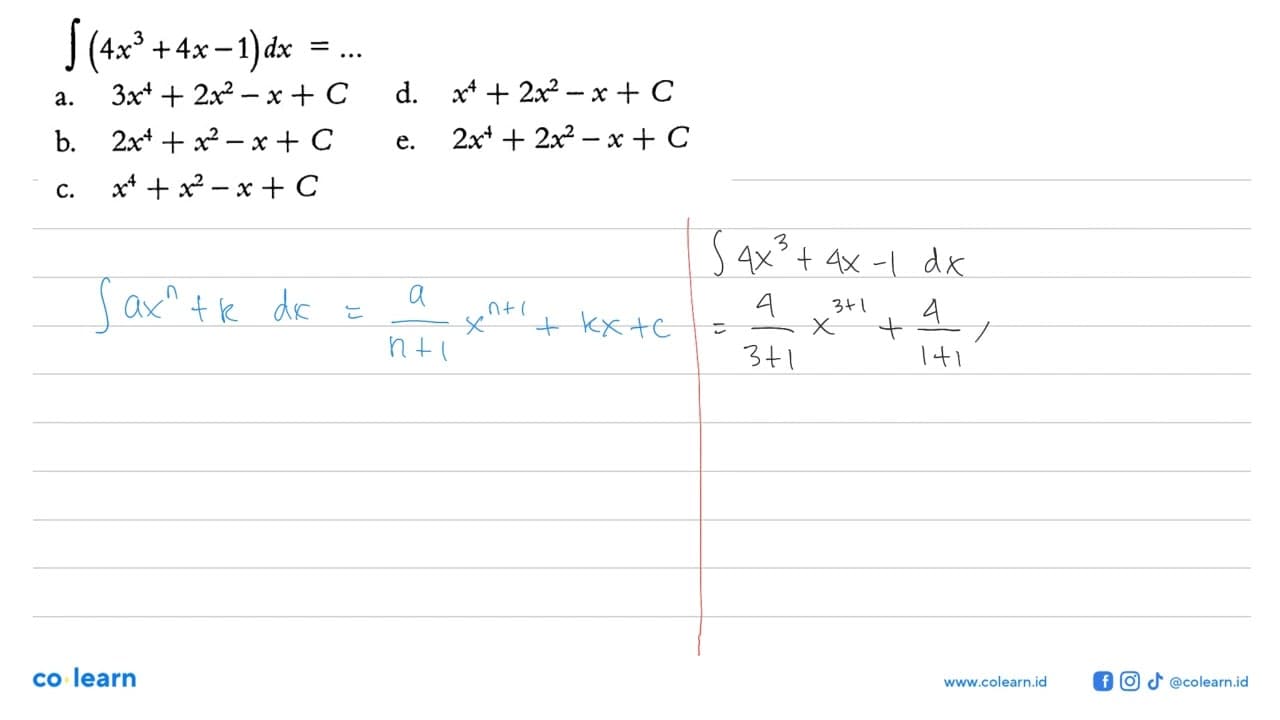 ∫(4x³ + 4x − 1) dx = ...
a. 3x⁴ + 2x² − x + C d. x⁴ + 2x² − x + C
b. 2x⁴ + x² − x + C e. 2x⁴ + 2x² − x + C
c. x⁴ + x² − x + C
∫ axⁿ + k dx = a/(n+1) xⁿ⁺¹ + kx + c
∫ 4x³ + 4x − 1 dx
= 4/(3+1) x³⁺¹ + 4/(1+1)
co learn
www.colearn.id @colearn.id